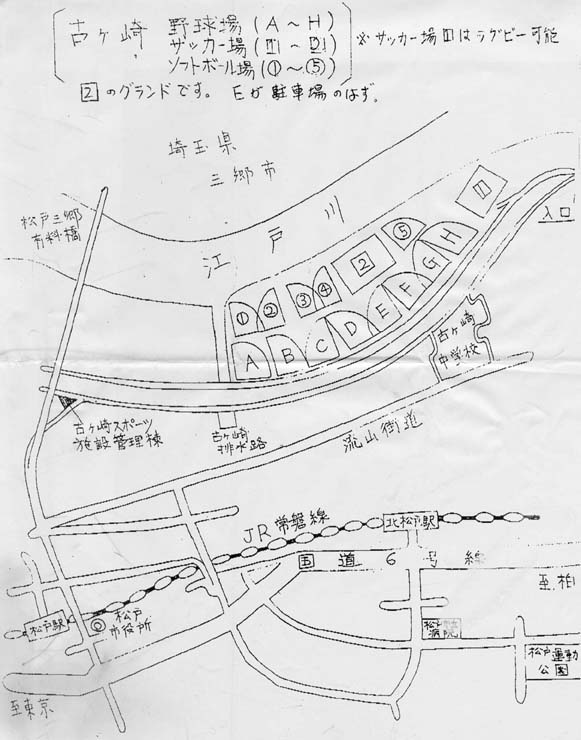 古ヶ崎 野球場(A～H)
サッカー場(1～2)
ソフトボール場(①～⑤)
※サッカー場1はラグビー可能
2のグランドです。Eが駐車場のはず。
埼玉県
三郷市
松戸三郷
有料橋
江戸川
入口
1
⑤
2
④
③
②
①
A
B
C
D
E
F
G
H
古ヶ崎
中学校
古ヶ崎スポーツ
施設管理棟
古ヶ崎
排水路
流山街道
JR常磐線
北松戸駅
国道6号線
至柏
松戸駅
松戸
市役所
松戸
病院
松戸運動
公園
至東京